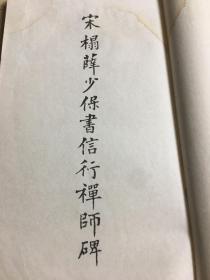 宋榻薛少保書信行禪師碑